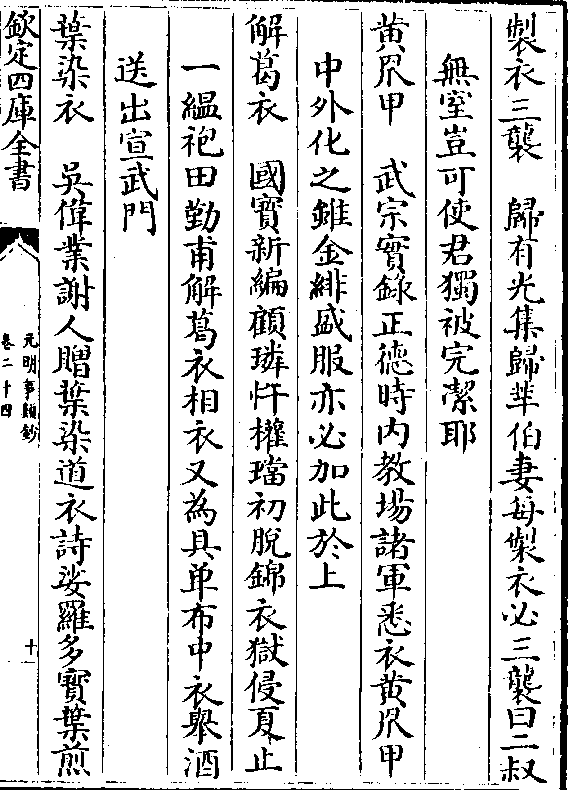 製衣三襲　歸有光集歸莘伯妻每製衣必三襲曰二叔
無室豈可使君獨被完潔耶
黄罛甲　武宗實録正徳時内教場諸軍悉衣黄罛甲
中外化之錐金緋盛服亦必加此於上
解葛衣　國寳新編顧璘忤權璫初脱錦衣獄侵夏止
一緼袍田勤甫解葛衣相衣又為具单布中衣舉酒
送出宣武門
葉染衣　吳偉業謝人贈葉染道衣詩娑羅多寳葉煎
欽定四庫全書
元明事類鈔
卷二十四
十